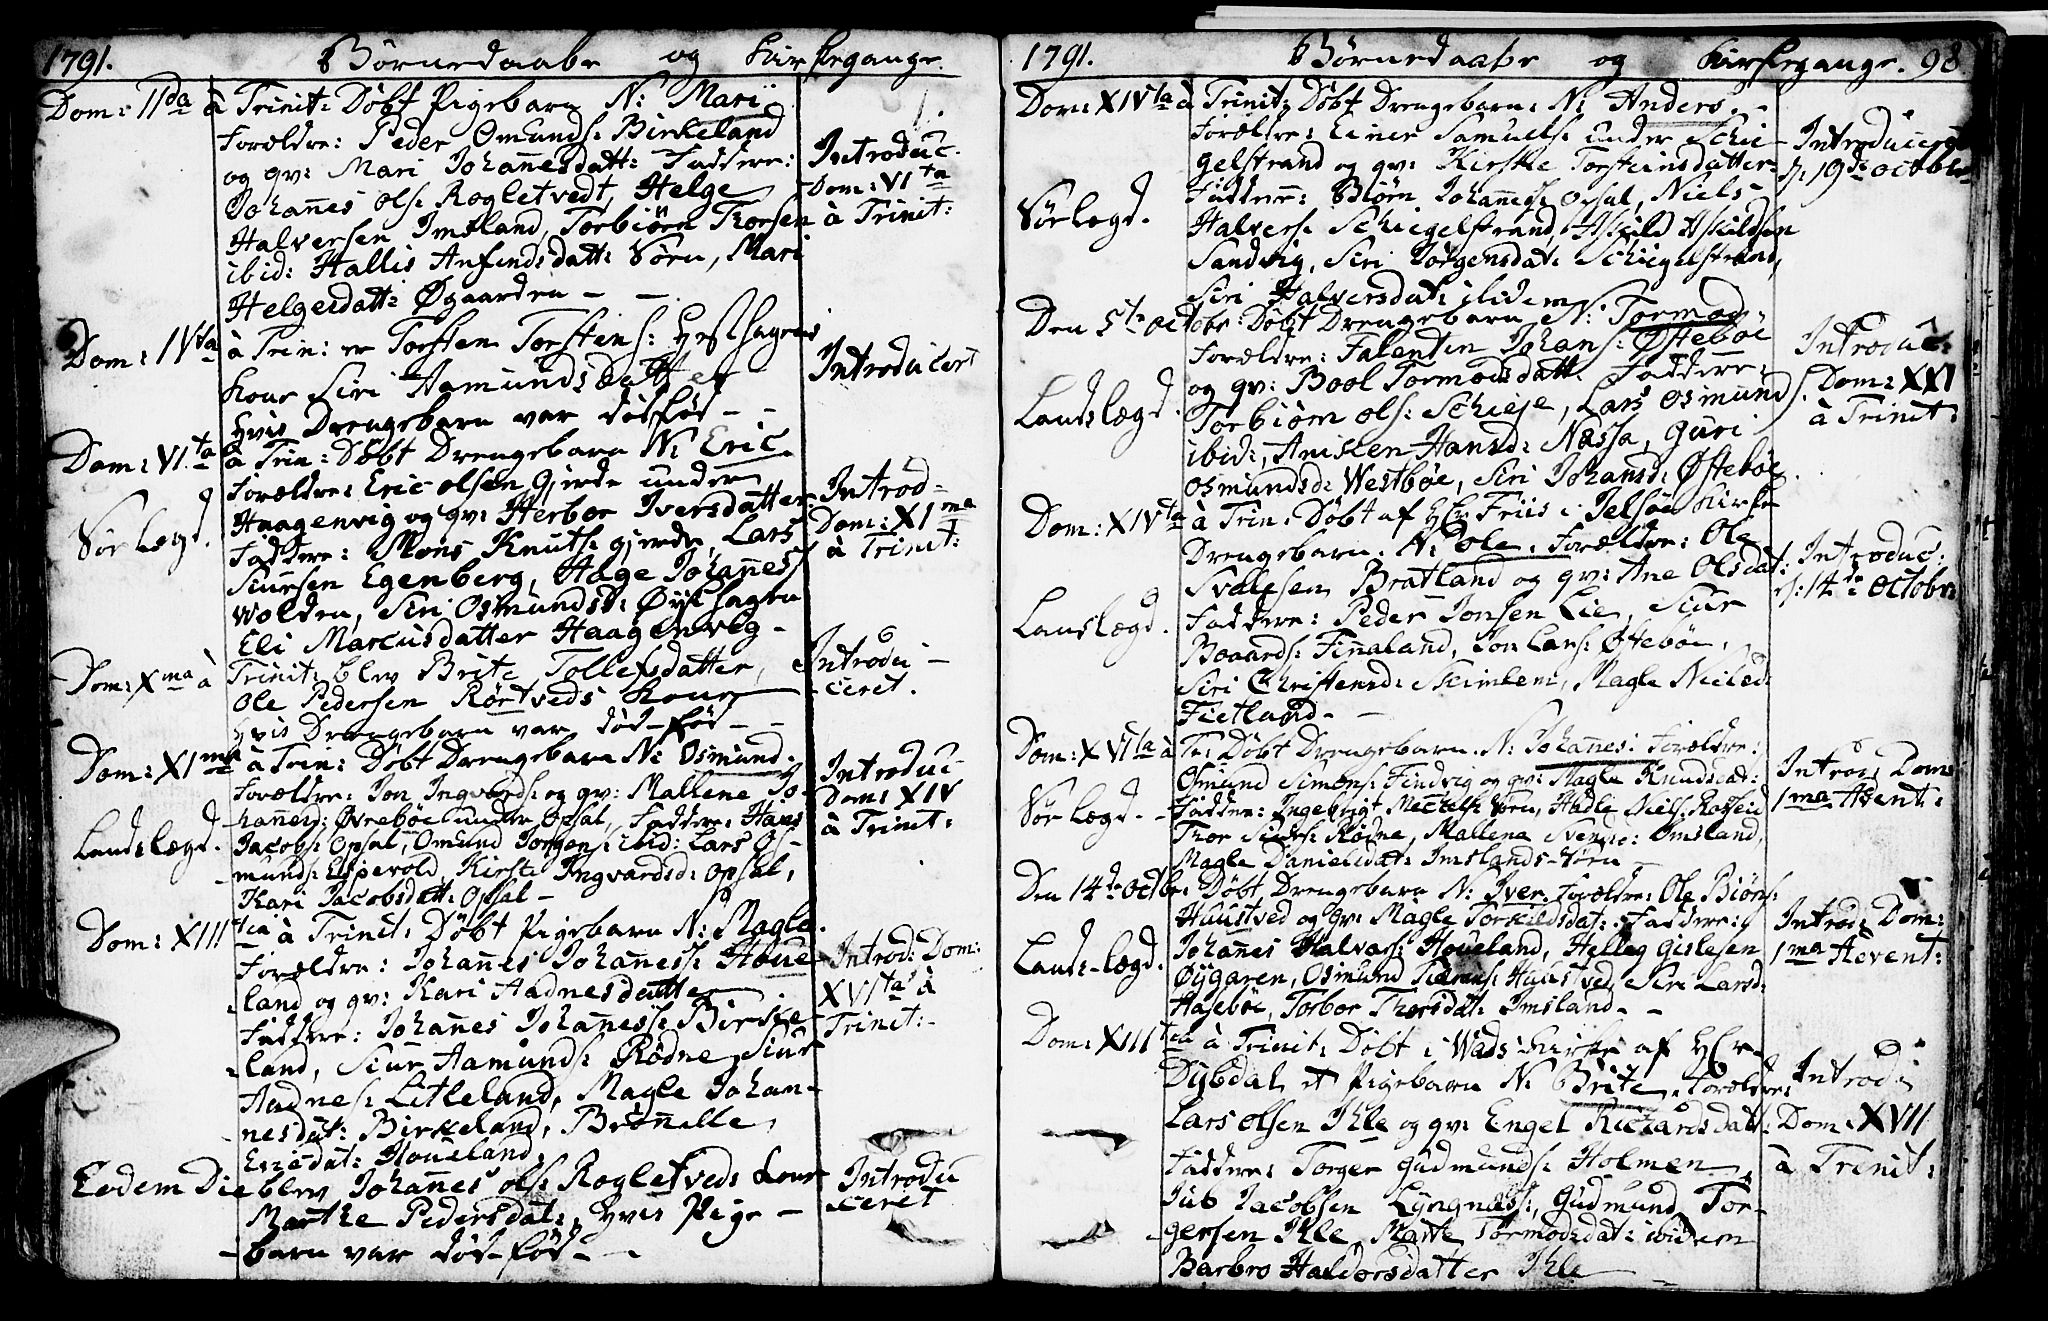 1791. Børnedaabe og Kirkegange.
Dom: IIda à Trinit: Døbt Pigebarn N: Mari
Forældre: Peder Omunds: Birkeland
og qv: Mari Johannesdatt: Faddere:
Johannes Ols: Rogletvedt, Helge
Halversen Imsland, Torbiörn Thorsen
ibid: Hallis Anfindsdatt: Vörn, Mari
Helgesdatt: Øgaarden -
Introduc.
Dom: VIta
à Trinit:
Dom: IVta à Trin: er Torsten Torstens:
Kone Siri Aamundsdatter
hvis Drengebarn var dödföd - -
Introducert
Dom: VIta à Trin: Döbt Drengebarn N: Eric
Forældre: Eric Olsen Gjerde under
Haagenvig og qv: Herbor Iversdatter
Faddere: Mons Knuts: Gjerde, Lars
Siursen Egenberg, Hage Johannes:
Wolden, Siri Osmundsd:
Eli Marcusdatter Haagenvig -
Sörlægd.
Introd=
Dom: XIma
à Trinit:
Dom: Xma à Trinit: blev Brite Tollefsdatter,
Ole Pedersen Rörtveds Kone
hvis Drengebarn var död-föd - -
Introdu-
ceret.
Dom: XIma à Trin: Döbt Drengebarn N: Osmund.
Forældre: Jon Ingvards: og qv: Mallene Jo-
hannesd: Øvreböe under Opsal, Faddere: Hans
Jacobs: Opsal, Omund Jorgens: ibid: Lars Os-
munds: Espevold, Kirsti Ingvardsd: Opsal,
Kari Jacobsdatt: Opsal -
Landslægd.
Introduc-
Dom: XIV
à Trinit:
Dom: XIIItia à Trinit: Döbt Pigebarn N: Magle.
Forældre: Johannes Johanness: Houe-
land og qv: Kari Aadnesdatter
Faddere: Johannes Johanness: Birke-
land, Siur Aamunds: Rödne, Siur
Aadnes: Litleland, Magle Johan-
nesdat: Birkeland, Brönnelle
Ericsdat: Houeland.
Introd: Dom:
XVIta à
Trinit:
Eodem Die blev Johannes Ols: Rogletveds Kone
Marthe Pedersdat:, hvis Pige-
barn var död-föd -
Introdu
ceret
1791. Børnedaabe og Kirkegange. 98
Dom: XIVta à Trinit: Döbt Drengebarn: N: Anders.
Forældre: Einer Samuels: under Schie
gelstrand og qv: Kirstie Torsteinsdatter
Faddere: Biörn Johannes: Opsal, Niels
Halvers: Schiegelstrand, Askild Askildsen
Sandvig, Siri Jörgensdat: Schiegelstrand,
Siri Halversdat: ibidem
Sörlægd.
Introduceret
d: 19de Octobr
Den 5te Octobr: Döbt Drengebarn N: Tormod
Forældre: Falentin Johans: Østeböe
og qv: Bool Tormodsdatt: Faddere:
Torbiörn Ols: Schieje, Lars Osmunds:
ibid:, Anisken Hansd: Næssa, Guri
Osmundsd: Westböe, Siri Johansd: Østeböe
Landslægd.
Introduc:
Dom: XXI
à Trinit:
Dom: XIVta à Trin: Döbt af Hr Friis i Jelsöe Kirke
Drengebarn. N: Ole. Forældre: Ole
Svalesen Bratland og qv: Ane Olsdat:
Faddere: Peder Jonsen Lie, Siur
Boaards: Finnaland, Jon Lars: Østeböe,
Siri Christensd: Skimlem, Magle Nielsd:
Fietland -
Landslægd.
Introduc:
d: 14de Octobr
Dom: XVIta à Tr: Döbt Drengebarn. N: Johannes: Forældre:
Osmund Simons: Findvig og qv: Magle Knudsdat:
Faddere: Ingebrigt Michels: Vörn, Hadle Niels:
Thor Siurs: Rödne, Mallena Svensd: Omsland,
Magle Danielsdat: Imslands-Vörn
Sörlægd.
Introd: Dom:
1ma Advent:
Den 14de Octbr: Döbt Drengebarn N: Iver. Forældre: Ole Biörs:
Haustved og qv: Magle Torkildsdat: Faddere:
Johannes Halvors: Houeland, Helleg Gislesen
Øygaren, Osmund Haustved, Siri Larsd:
Hageböe, Torbor Thorsdat: Imsland - -
Lands-lægd.
Introd: Dom:
1ma Advent:
Dom: XIIItia à Trinit: Döbt i Wads Kirke af Hr
Dybdal et Pigebarn N: Brite. Forældre:
Lars Olsen Ihle og qv: Engel Richardsdatt:
Faddere: Torger Gudmunds: Holmen,
Jub Jacobsen Lyngnæss:, Gudmund Tor-
gersen Ihle, Marte Tormodsdat: ibidem
Barbro Haldorsdatter Ihle
Introd:
Dom: XVII
à Trinit: